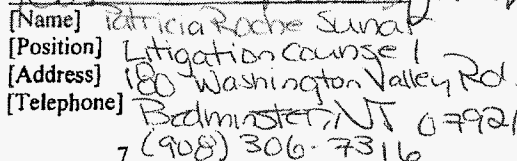 [Name] Patricia Roche Sunar
[Position] Litigation Counsel
[Address] 180 Washington Valley Rd.
[Telephone] Bedminster, NJ 07921
7 (908) 306-7316